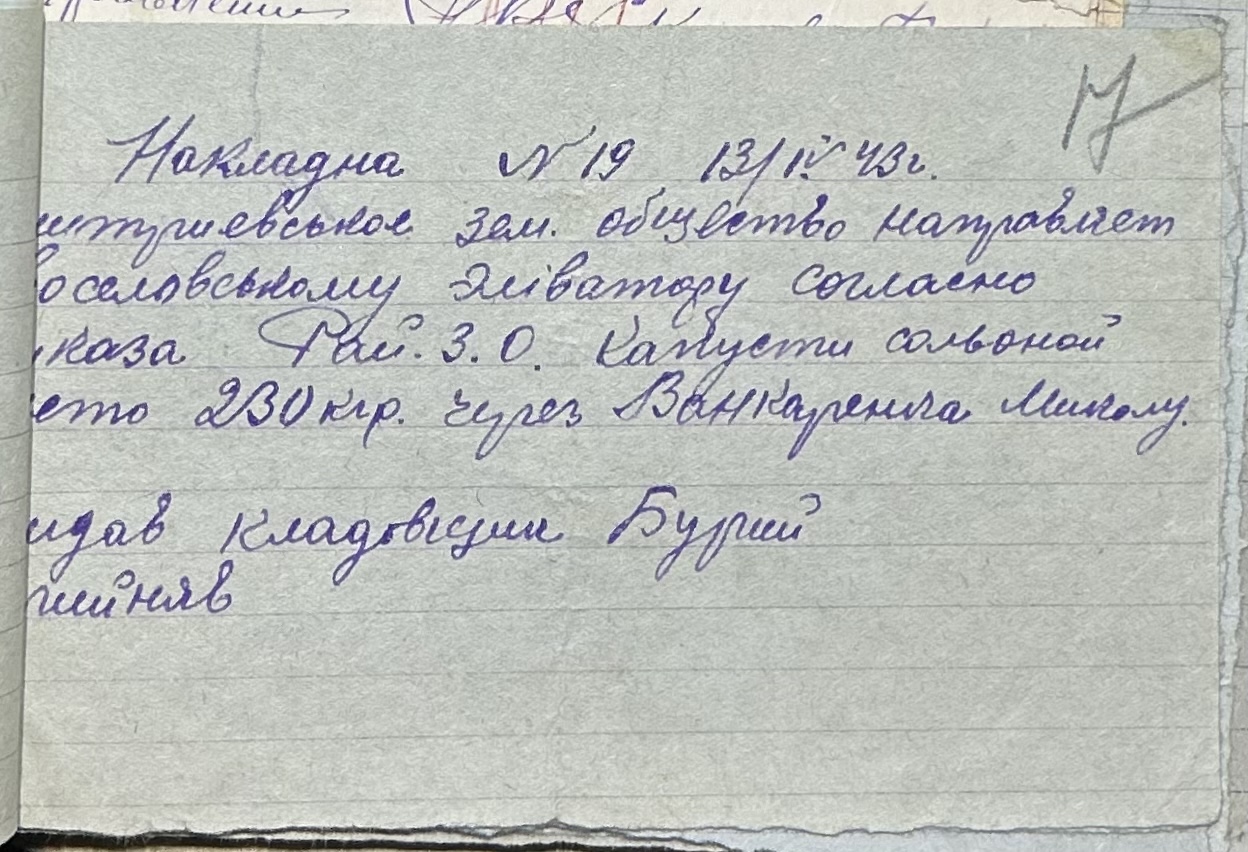 17
Накладна №19 13/IV 43г.
зем. общество направляет
оселовському Элїватору согласно
каза Рай. З. О. Капусти сольоной
230 кгр. через Миколу.
идав кладовщик Бурий
рийняв